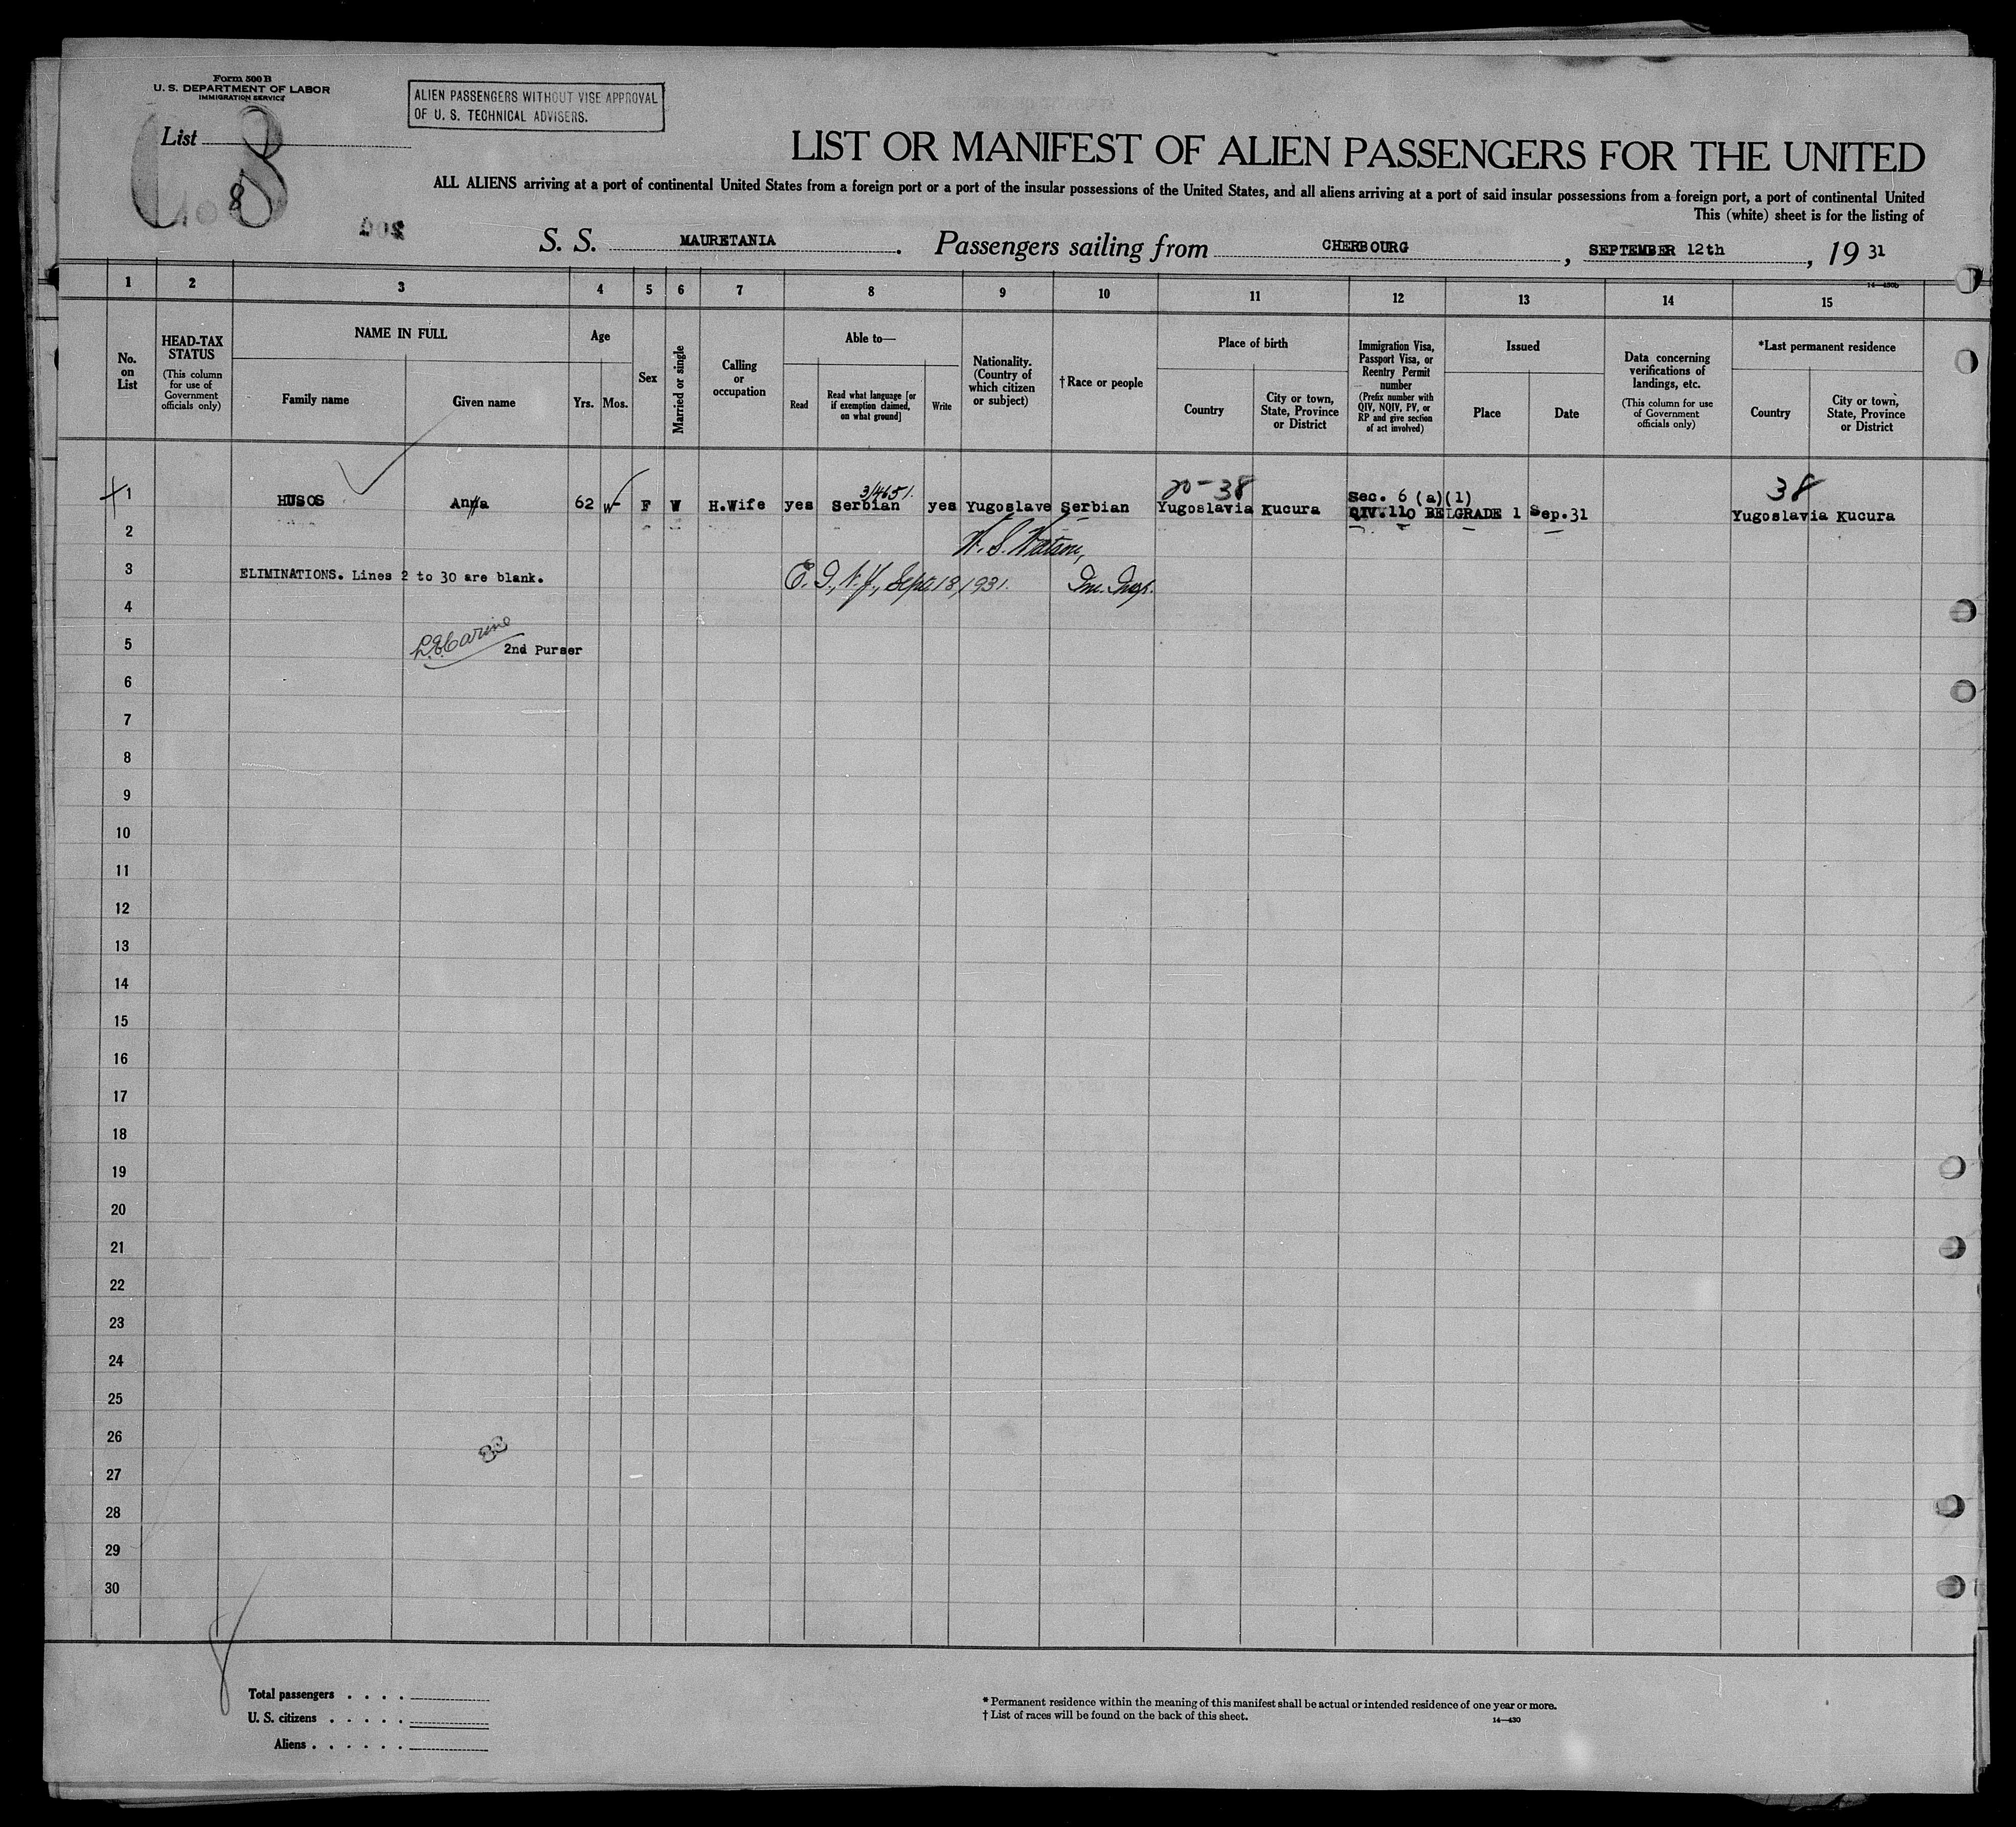 Form 500 B
U. S. DEPARTMENT OF LABOR
IMMIGRATION SERVICE
ALIEN PASSENGERS WITHOUT VISE APPROVAL
OF U. S. TECHNICAL ADVISERS.
List 8
8
LIST OR MANIFEST OF ALIEN PASSENGERS FOR THE UNITED
ALL ALIENS arriving at a port of continental United States from a foreign port or a port of the insular possessions of the United States, and all aliens arriving at a port of said insular possessions from a foreign port, a port of continental United
This (white) sheet is for the listing of
S. S. MAURETANIA. Passengers sailing from CHERBOURG, SEPTEMBER 12th, 19 31
14—430b
1 2 3 4 5 6 7 8 9 10 11 12 13 14 15
No. on List
HEAD-TAX STATUS
(This column for use of Government officials only)
NAME IN FULL
Family name
Given name
Age
Yrs. Mos.
Sex
Married or single
Calling or occupation
Able to—
Read
Read what language [or if exemption claimed, on what ground]
Write
Nationality. (Country of which citizen or subject)
†Race or people
Place of birth
Country
City or town, State, Province or District
Immigration Visa, Passport Visa, or Reentry Permit number
(Prefix number with QIV, NQIV, PV, or RP and give section of act involved)
Issued
Place
Date
Data concerning verifications of landings, etc.
(This column for use of Government officials only)
*Last permanent residence
Country
City or town, State, Province or District
3/4651. 20-38 Sec. 6 (a)(1) 38
1 HUSOS Anna 62 F W H.Wife yes Serbian yes Yugoslave Serbian Yugoslavia Kucura QIV.110 BELGRADE 1 Sep.31 Yugoslavia Kucura
2 W. S. Watson,
3 ELIMINATIONS. Lines 2 to 30 are blank. E. I., N.Y., Sept 18, 1931. Im. Insp.
4
5 2nd Purser
6
7
8
9
10
11
12
13
14
15
16
17
18
19
20
21
22
23
24
25
26
27
28
29
30
Total passengers . . . .
U. S. citizens . . . . .
Aliens . . . . . .
* Permanent residence within the meaning of this manifest shall be actual or intended residence of one year or more.
† List of races will be found on the back of this sheet.
14—430